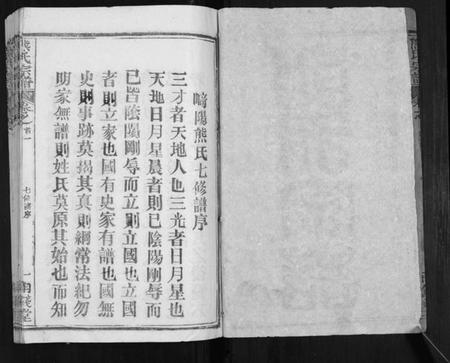 崎陽熊氏七修譜序
三才者天地人也三光者日月星也
天地日月星晨者則已陰陽剛辱而
已皆陰陽剛辱而立則立國也立國
者則立家也國有史家有譜也國無
史則事跡莫揭其真則綱常法紀勿
明家無譜則姓氏莫原其始也而知
熊氏宗譜
卷之首一
七修譜序
一
堂